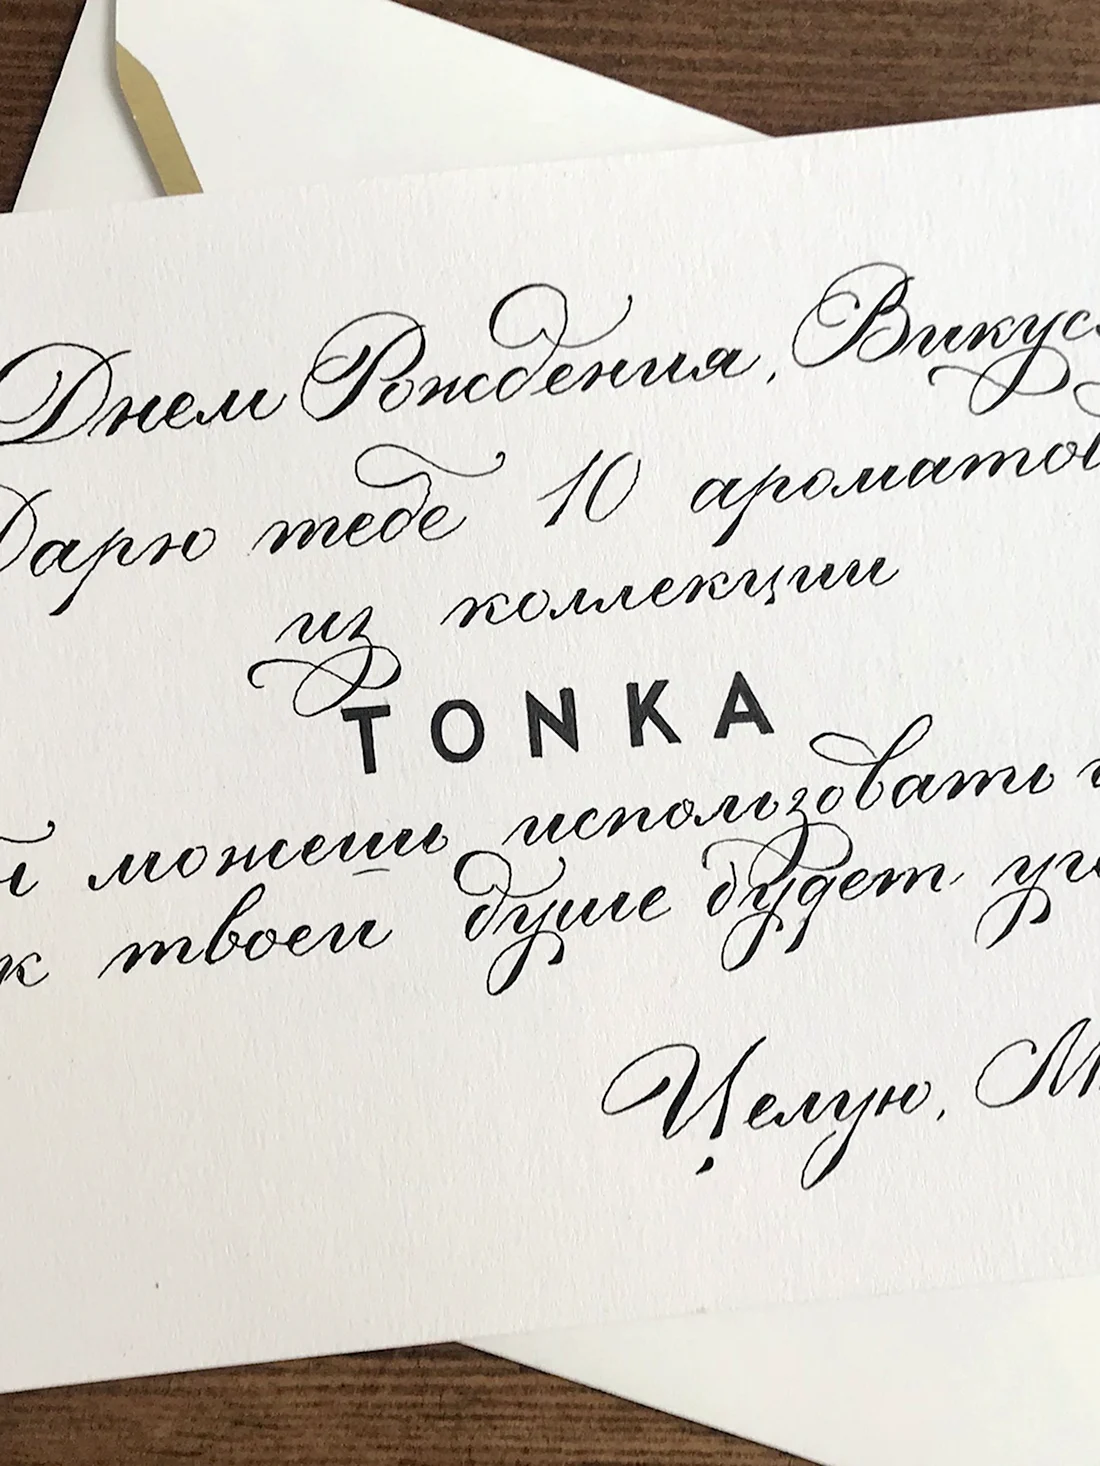 Днем Рождения, Викус
Дарю тебе 10 ароматов
из коллекции
TONKA
можешь использовать
к твоей душе будет
Целую,